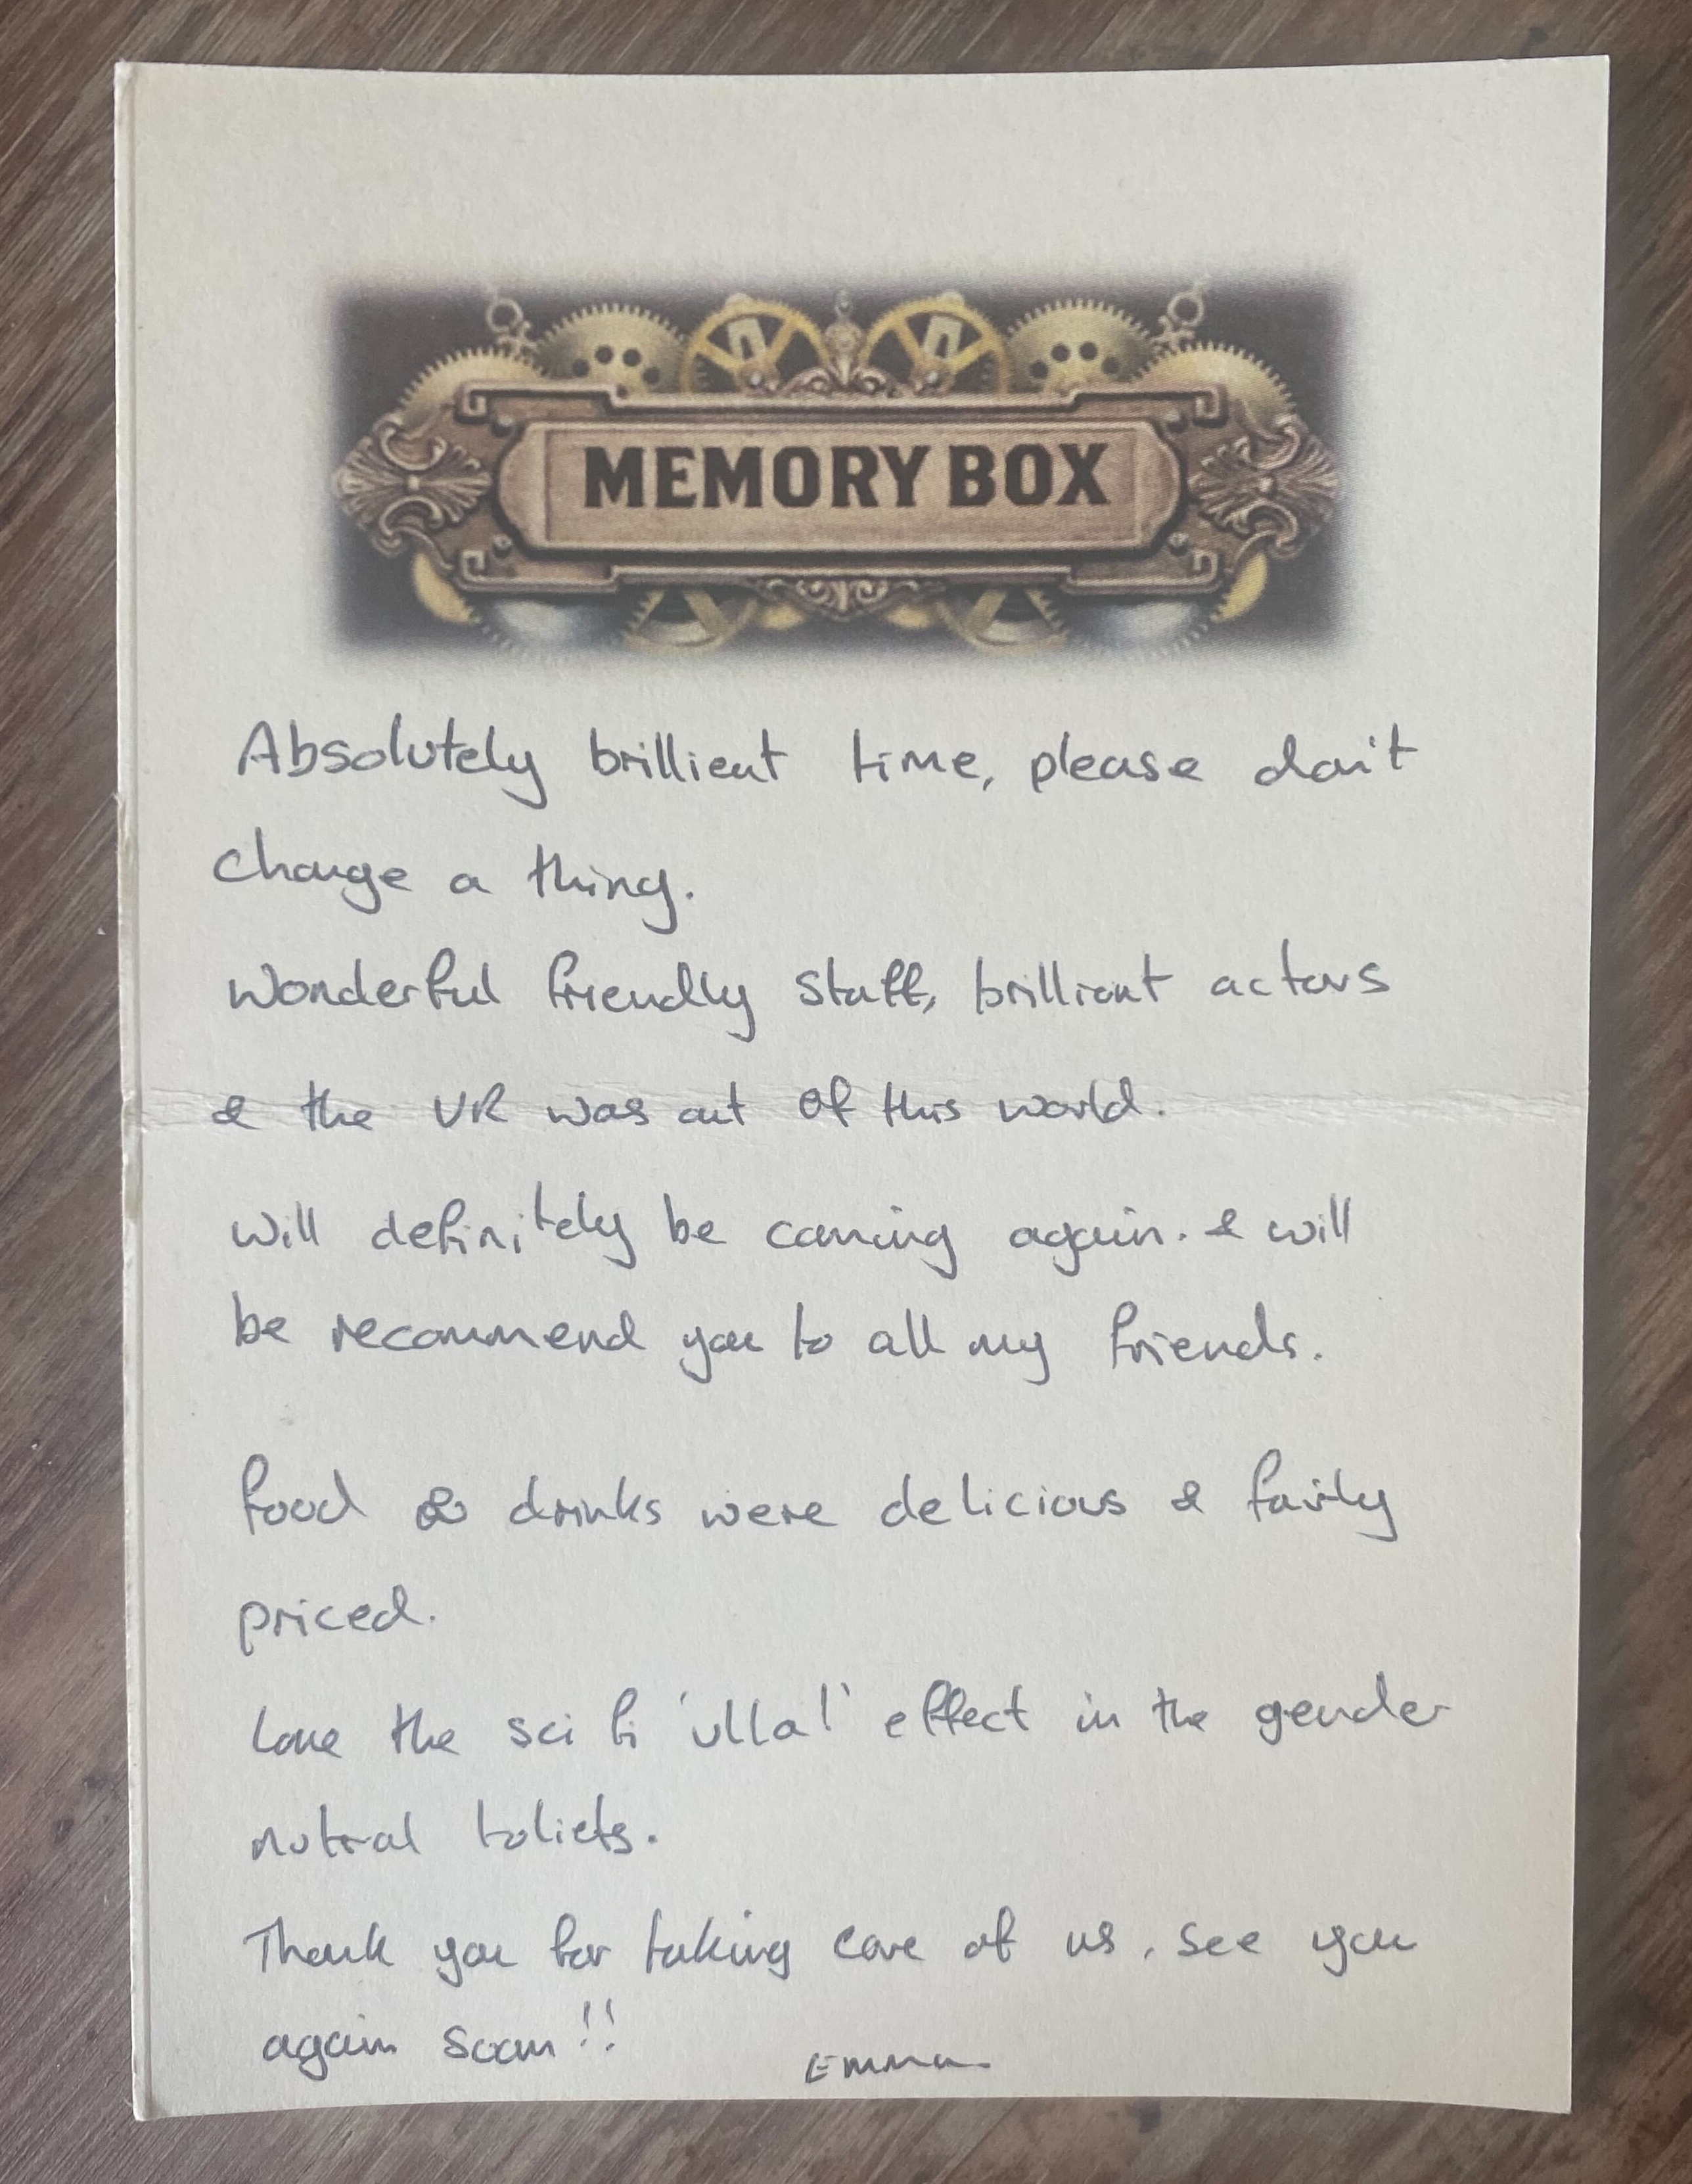 MEMORY BOX
Absolutely brillient time, please don't
change a thing.
Wonderful friendly staff, brilliant actors
& the VR was out of this world.
Will definitely be coming again. & will
be recommend you to all my friends.
food & drinks were delicious & fairly
priced.
Love the sci fi 'ulla!' effect in the gender
nutral toliets.
Thank you for taking care of us, see you
again soon!!
Emma